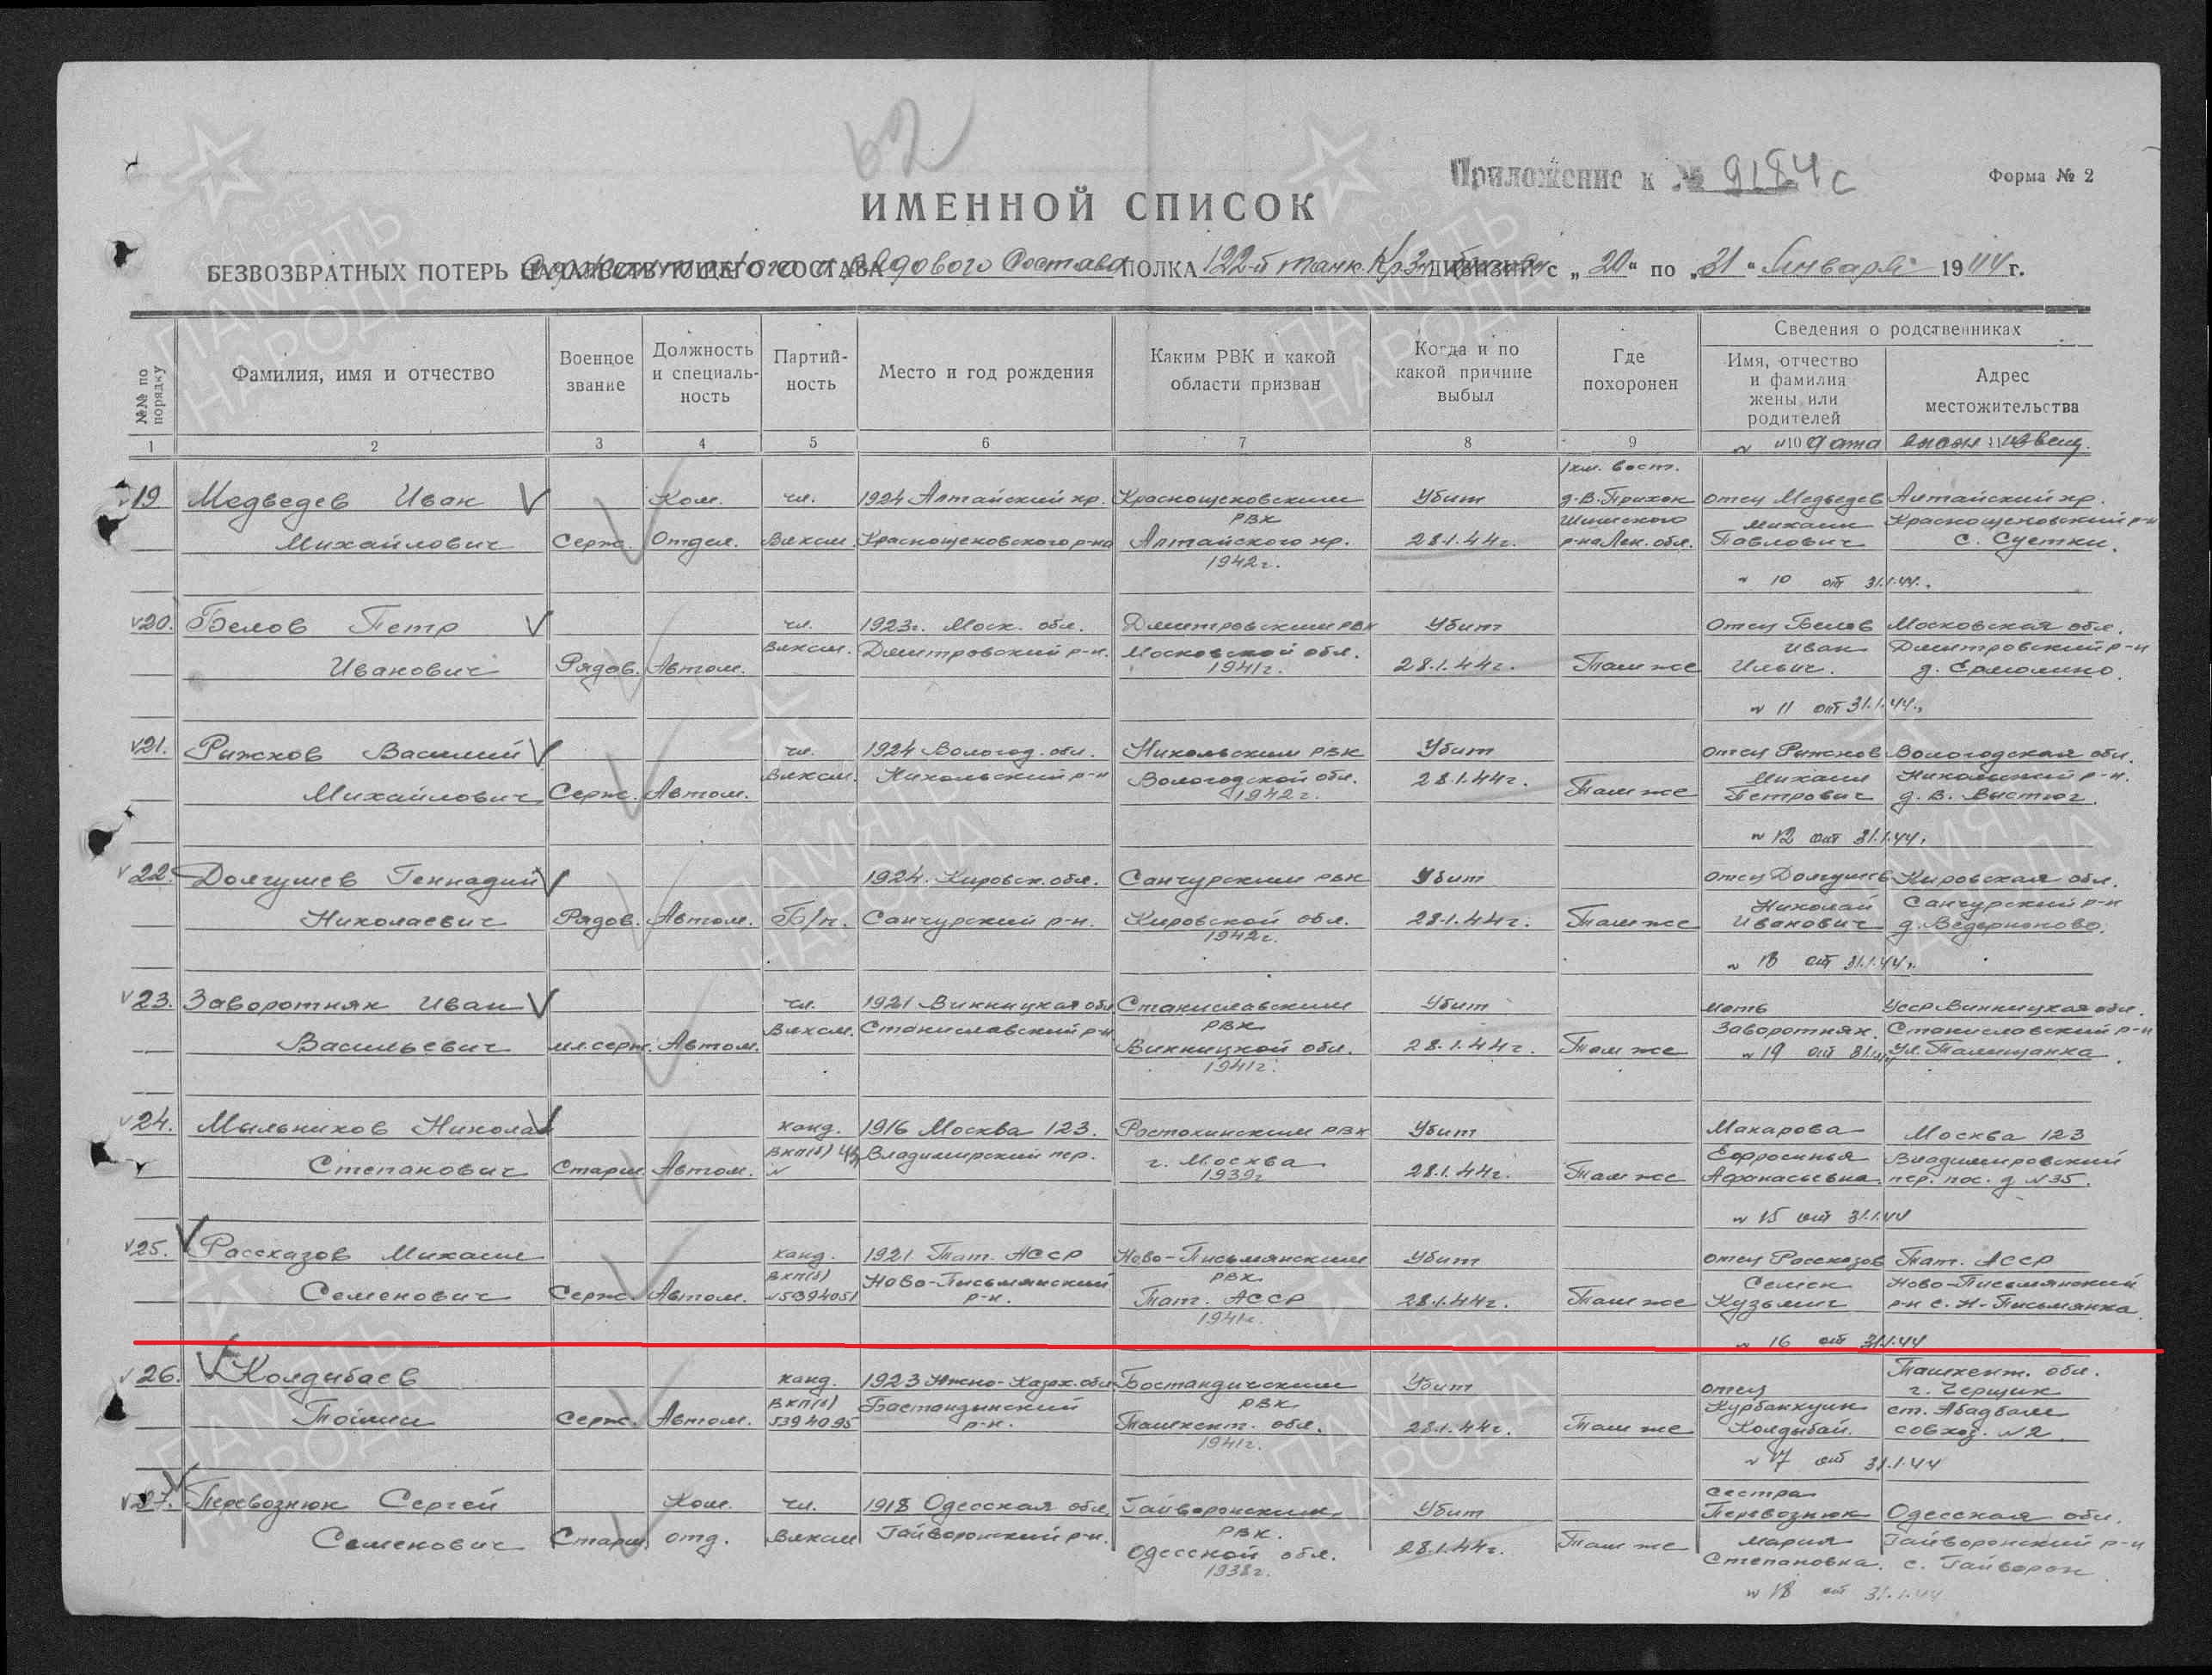 62
Приложение к № 9184с
Форма № 2
ИМЕННОЙ СПИСОК
БЕЗВОЗВРАТНЫХ ПОТЕРЬ рядового состава ПОЛКА 122-й танк. Крзн. с „20“ по „31“ Января 1944 г.
№№ по порядку
Фамилия, имя и отчество
Военное звание
Должность и специальность
Партийность
Место и год рождения
Каким РВК и какой области призван
Когда и по какой причине выбыл
Где похоронен
Сведения о родственниках
Имя, отчество и фамилия жены или родителей
Адрес местожительства
1 2 3 4 5 6 7 8 9 10 дата извещ.
1 км. вост.
19 Медведев Иван Ком. чл. 1924 Алтайский кр. Краснощековским Убит отец Медведев Алтайский кр.
РВК Михаил Краснощековский р-н
Михайлович Серж. Отдел. Влксм. Краснощековского р-на Алтайского кр. 28.1.44г. р-на Лен. обл. Павлович с. Суетки.
1942г.
10 от 31.1.44.
20. Белов Петр чл. 1923г. Моск. обл. Дмитровским РВК Убит Отец Белов Московская обл.
Влксм. Дмитровский р-н. Московской обл. Иван Дмитровский р-н
Иванович Рядов. Автом. 1941г. 28.1.44г. Там же Ильич. д. Ермолино.
11 от 31.1.44.
21. Рыжков Василий чл. 1924 Вологод. обл. Никольским РВК Убит отец Рыжков Вологодская обл.
Влксм. Никольский р-н Вологодской обл. 28.1.44г. Михаил Никольский р-н.
Михайлович Серж. Автом. 1942г. Там же Петрович
12 от 31.1.44.
22. Долгушев Геннадий 1924. Кировск. обл. Санчурским РВК Убит отец Долгушев Кировская обл.
Николай Санчурский р-н
Николаевич Рядов. Автом. Б/п. Санчурский р-н. Кировской обл. 28.1.44г. Там же Иванович
1942г.
от 31.1.44г.
23. Заворотняк Иван чл. 1921 Винницкая обл Станиславским Убит мать УССР Винницкая обл.
Влксм. Станиславский р-н РВК Заворотняк Станиславский р-н
Васильевич мл.серж. Автом. Винницкой обл. 28.1.44г. Там же
1941г.
24. Мыльников Николай Канд. 1916 Москва 123. Ростокинским РВК Убит Макарова Москва 123
ВКП(б) Владимирский пер. Ефросинья Владимировский
Степанович Старш. Автом. г. Москва 28.1.44г. Там же Афанасьевна пер. пос. д №35.
1939г
15 от 31.1.44
25. Рассказов Михаил Канд. 1921. Тат. АССР Ново-Письмянским Убит отец Рассказов Тат. АССР
ВКП(б) Ново-Письмянский РВК Семен Ново-Письмянский
Семенович Серж. Автом. №5394051 р-н. Тат. АССР 28.1.44г. Там же Кузьмич р-н с. Н-Письмянка
1941г.
16 от 31.1.44
26. Колдыбаев Канд. 1923 Южно-Казах. обл Бостандыкским Убит отец Ташкент. обл.
ВКП(б) Бостандыкский РВК Курбанкул
Серж. Автом. 5394095 р-н. Ташкент. обл. 28.1.44г. Там же Колдыбай. совхоз. №2.
1941г.
17 от 31.1.44
27. Перевознюк Сергей Ком. чл. 1918 Одесская обл. Гайворонским Убит сестра Перевознюк Одесская обл.
Семенович Старш. отд. Влксм Гайворонский р-н. РВК. Одесской обл. 28.1.44г. Там же Мария Гайворонский р-н
1938г. Степановна. с. Гайворон.
18 от 31.1.44
ПАМЯТЬ НАРОДА
1941 1945